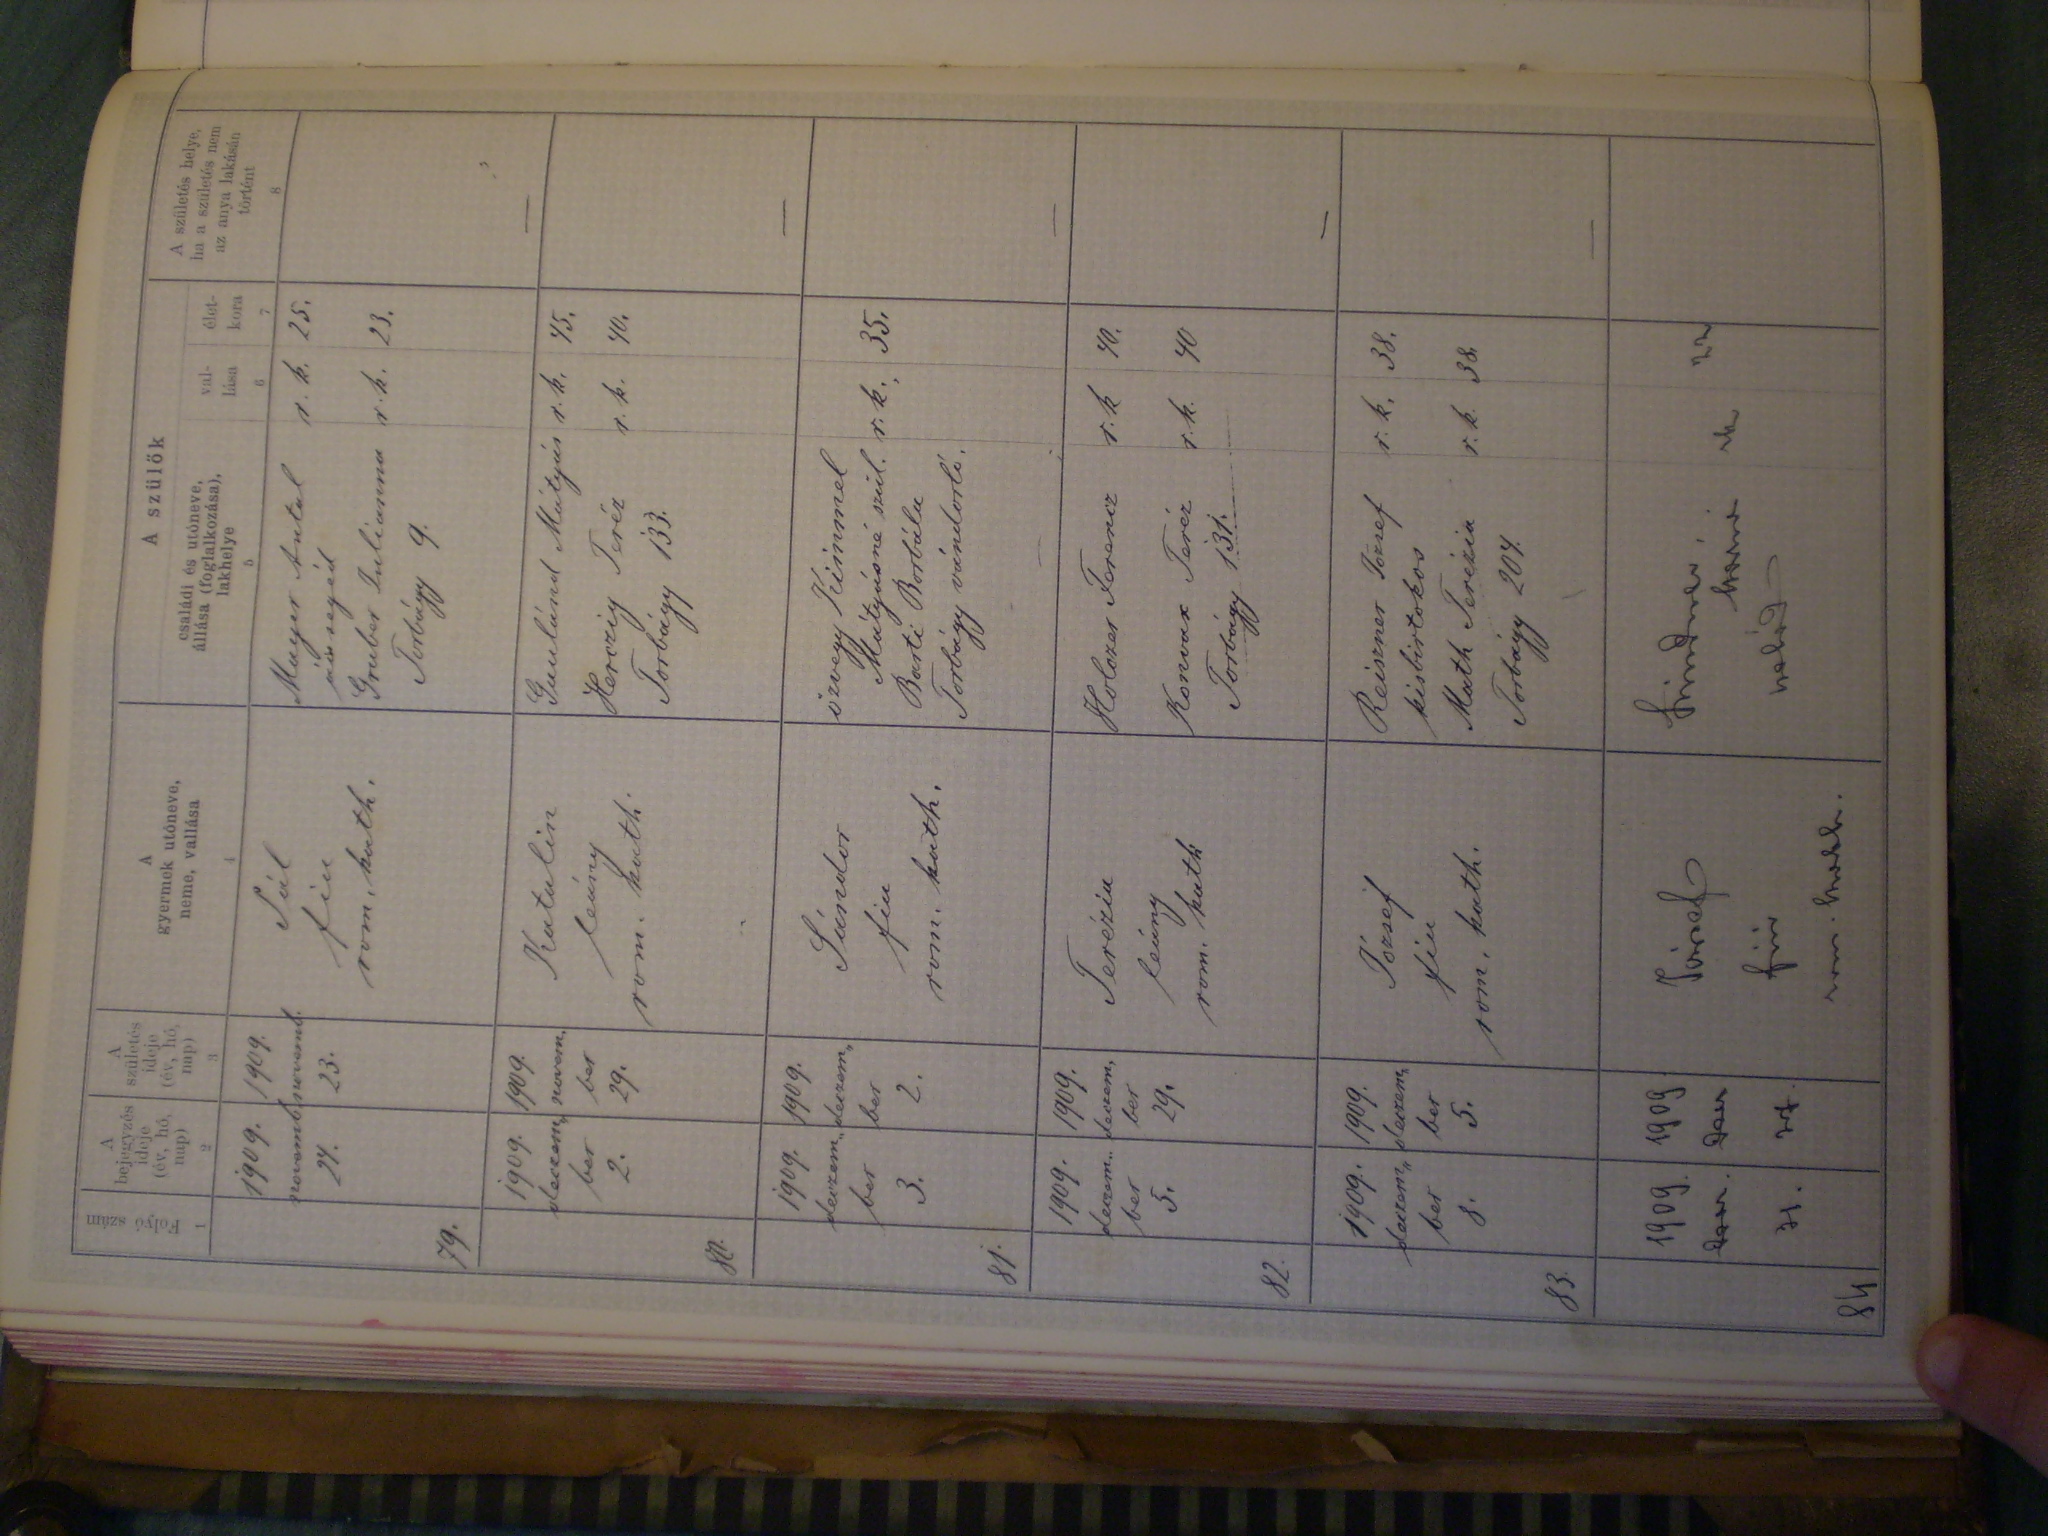 Folyó szám
A bejegyzés ideje (év, hó, nap)
A születés ideje (év, hó, nap)
A gyermek utóneve, neme, vallása
A szülők
családi és utóneve, állása (foglalkozása), lakhelye
vallása
életkora
A születés helye, ha a születés nem az anya lakásán történt
1 2 3 4 5 6 7 8
79.
1909.
novemb.
24.
1909.
novemb.
23.
Pál
fiu
rom. kath.
Mayer Antal r. k. 25.
Gruber Julianna r. k. 23.
Torbágy 9.
80.
1909.
deczem„
ber
2.
1909.
novem„
ber
29.
Katalin
leány
rom. kath.
Mátyás r. k. 45.
Herczig Teréz r. k. 40.
Torbágy 133.
—
81.
1909.
deczem„
ber
3.
1909.
deczem„
ber
2.
Sándor
fiu
rom. kath.
özvegy Kimmel
Mátyásné szül. r. k. 35.
Barti Borbála
Torbágy
—
82.
1909.
deczem„
ber
5.
1909.
deczem,
ber
29.
Terézia
leány
rom. kath
Holczer Ferencz r. k 40.
Teréz r. k. 40
Torbágy 131.
—
83.
1909.
deczem„
ber
8.
1909.
deczem„
ber
5.
József
fiu
rom. kath.
Reiszner József r. k. 38.
kisbirtokos
Math Terézia r. k. 38.
Torbágy 204.
—
84
1909.
31.
1909
József
fiu
rom. kath.